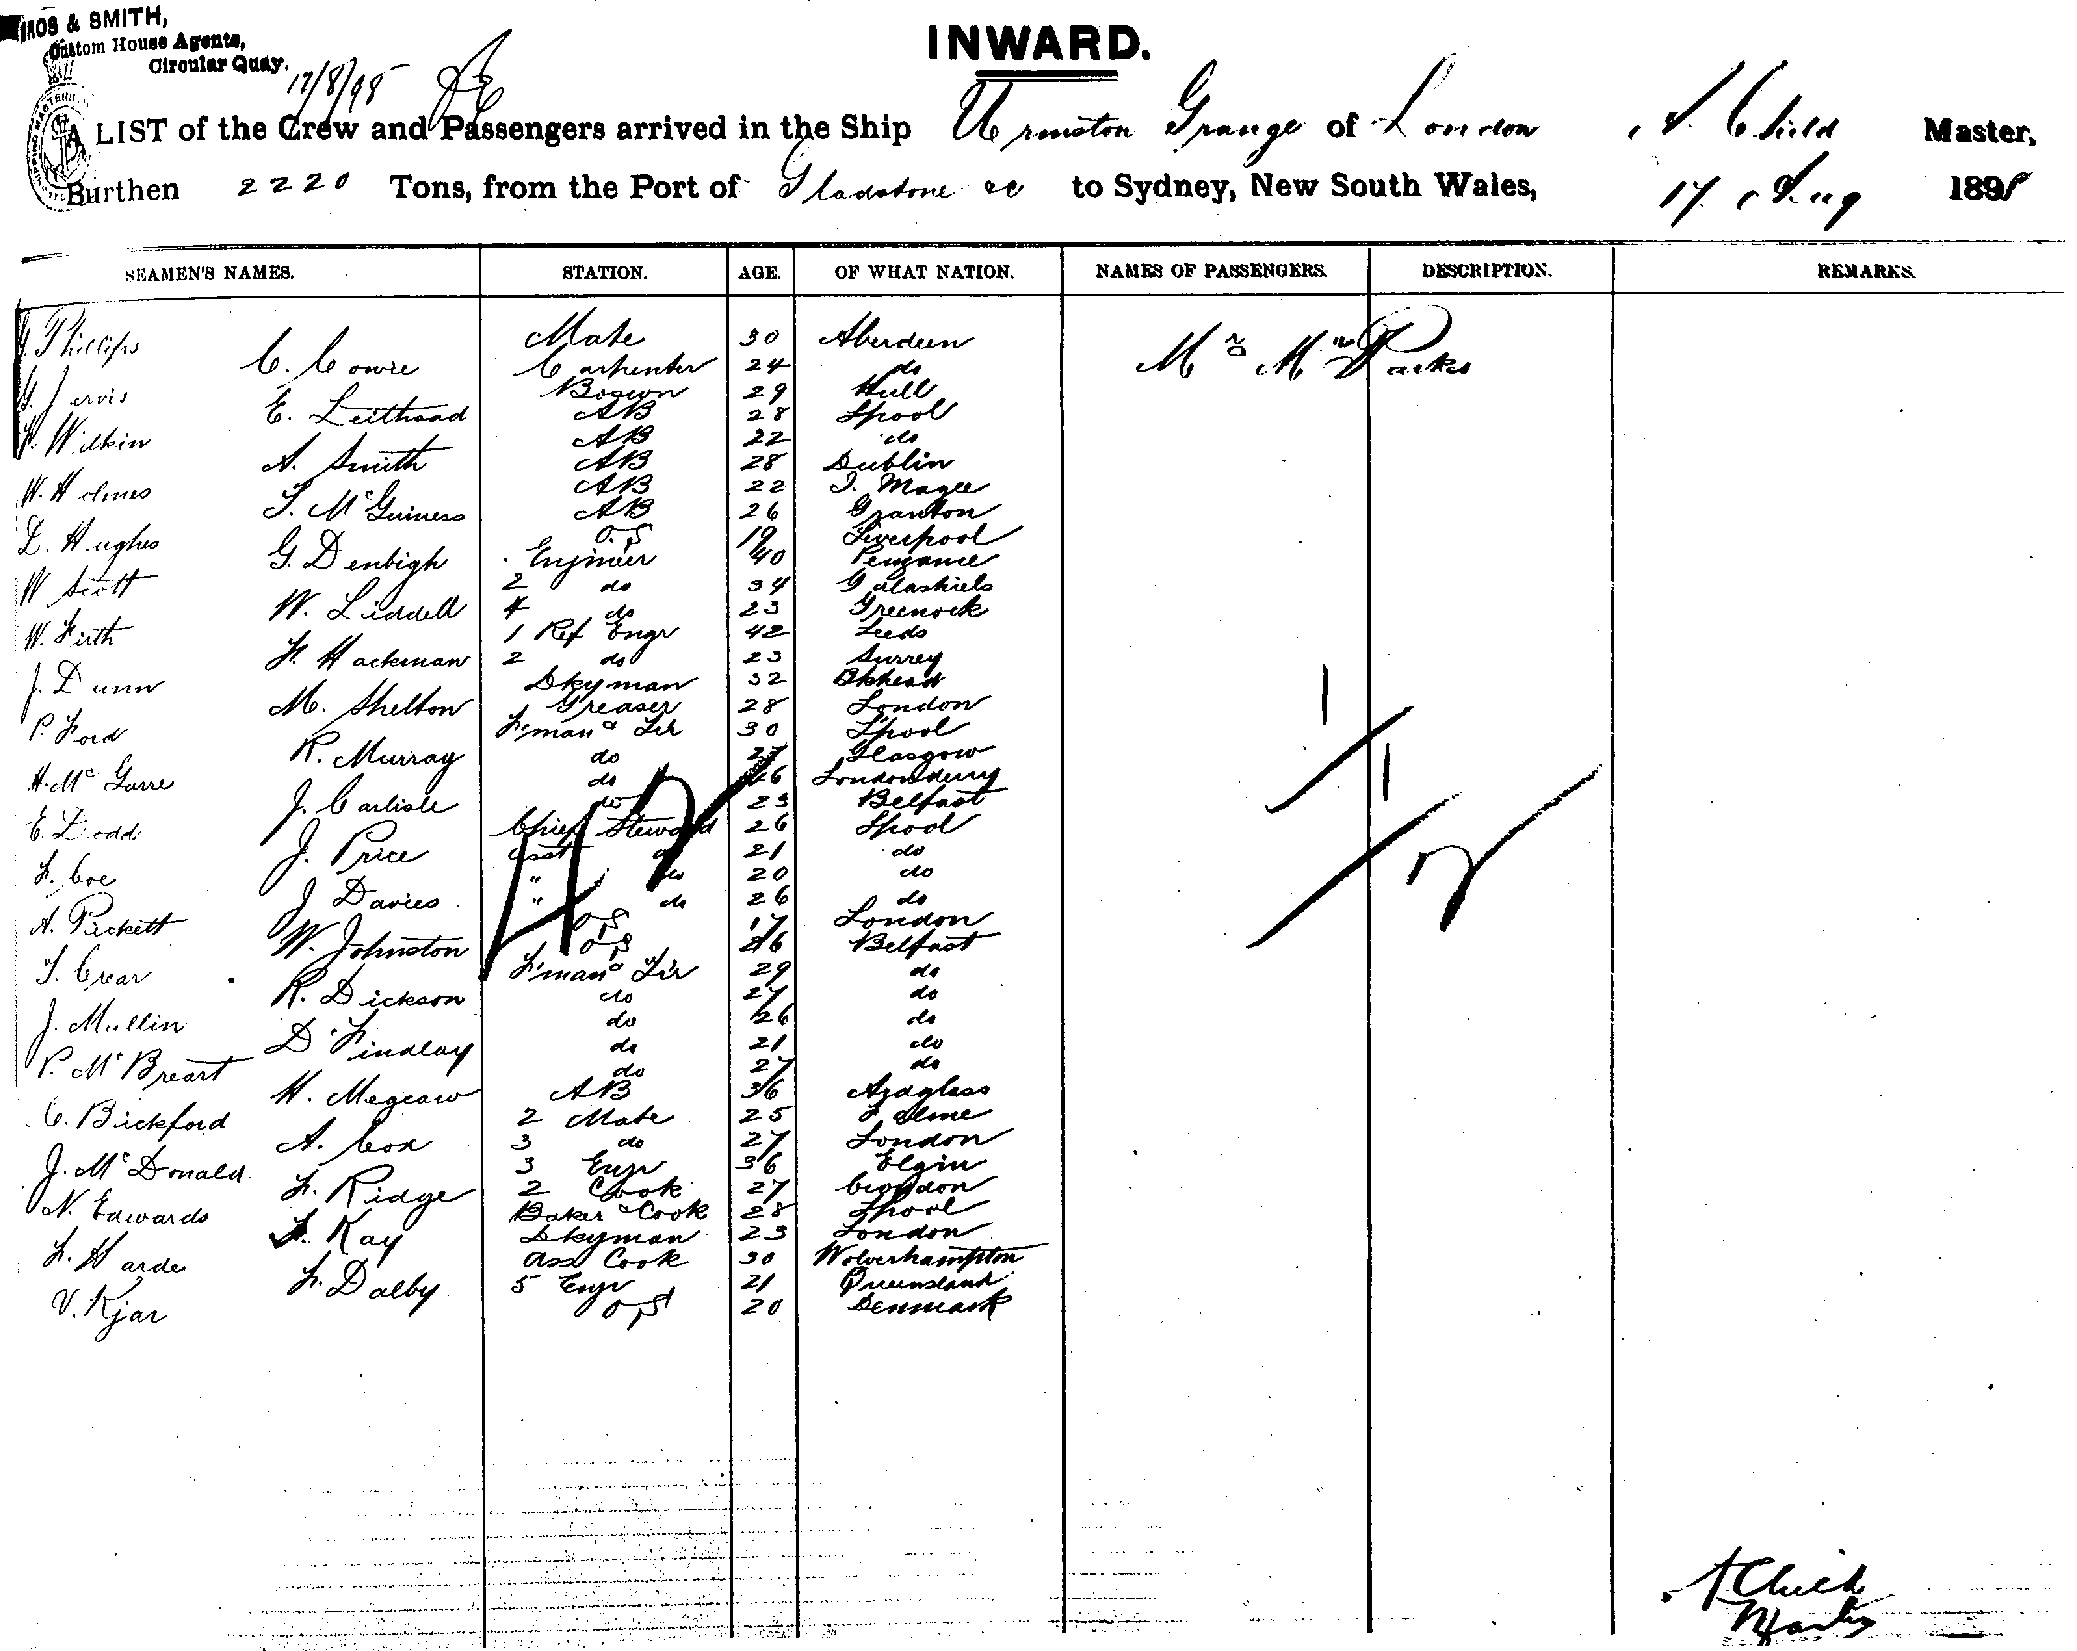 & SMITH,
Custom House Agents,
Circular Quay.
17/8/98
INWARD.
A LIST of the Crew and Passengers arrived in the Ship Urmston Grange of London A. Child Master,
Burthen 2220 Tons, from the Port of Gladstone &c to Sydney, New South Wales, 17 Aug 1898
SEAMEN'S NAMES. STATION. AGE. OF WHAT NATION. NAMES OF PASSENGERS. DESCRIPTION. REMARKS.
Phillips Mate 30 Aberdeen Mr & Mrs Parkes
C. Cowie Carpenter 24 do
G. Jervis Boswn 29 Hull
E. Leithead AB 28 Lpool
Wilkin AB 22 do
A. Smith AB 28 Dublin
W. Holmes AB 22 I. Magee
T. McGuiness AB 26 Granton
L. Hughes O.S 19 Liverpool
G. Denbigh Engineer 40 Penzance
W Scott 2 do 34 Galashiels
W. Liddell 4 do 23 Greenock
W. Firth 1 Ref Engr 42 Leeds
F. Hackman 2 do 23 Surrey
J. Dunn Dkyman 32 Bkhead
M. Shelton Greaser 28 London
P. Ford F'man & Tr 30 Lpool
R. Murray do 27 Glasgow
H. McGarre do 26 Londonderry
J. Carlisle do 23 Belfast
E. Dodd Chief Steward 26 Lpool
J. Price Asst do 21 do
F. Coe " do 20 do
J Davies " do 26 do
A. Pickett OS 17 London
W. Johnston OS 26 Belfast
T. Crear F'man & Tr 29 do
R. Dickson do 27 do
J. Mullin do 26 do
D Findlay do 21 do
P. McBreart do 27 do
H. Megraw AB 36 Ardglass
C. Bickford 2 Mate 25
A. Cox 3 do 27 London
J. McDonald 3 Engr 36 Elgin
F. Ridge 2 Cook 27 Croydon
N. Edwards Baker & Cook 28 Lpool
F. Kay Dkyman 23 London
F. Harde Ass Cook 30 Wolverhampton
F. Dalby 5 Engr 21 Queensland
V. Kjar OS 20 Denmark
A Child
Master